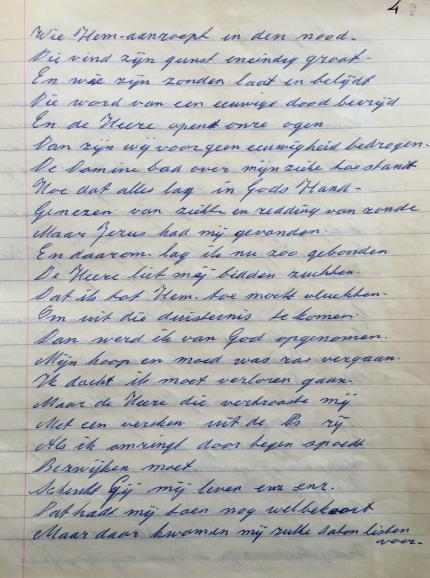 4
Wie Hem aanroept in den nood.
Die vind zijn gunst oneindig groot.
En wie zijn zonden laat en belijdt
Die word van een eeuwige dood bevrijd
En de Heere opent onze ogen
Dan zijn wij voor geen eeuwigheid bedrogen.
De Domine bad over mijn ziekte toestand
Hoe dat alles lag in Gods Hand
Genezen van ziekte en redding van zonde
Maar Jezus had mij gevonden.
En daarom lag ik nu zoo gebonden
De Heere liet mij bidden zuchten.
Dat ik tot Hem toe mocht vluchten.
Om uit die duisternis te komen.
Dan werd ik van God opgenomen.
Mijn hoop en moed was ras vergaan.
Ik dacht ik moet verloren gaan.
Maar de Heere die vertrooste mij
Met een versken uit de Ps zij
Als ik omringt door tegen spoedt
Bezwijken moet.
Schenkt Gij mij leven enz enz.
Dat hadt mij toen nog wel bekoort
Maar daar kwamen mij zulke satan listen
voor.